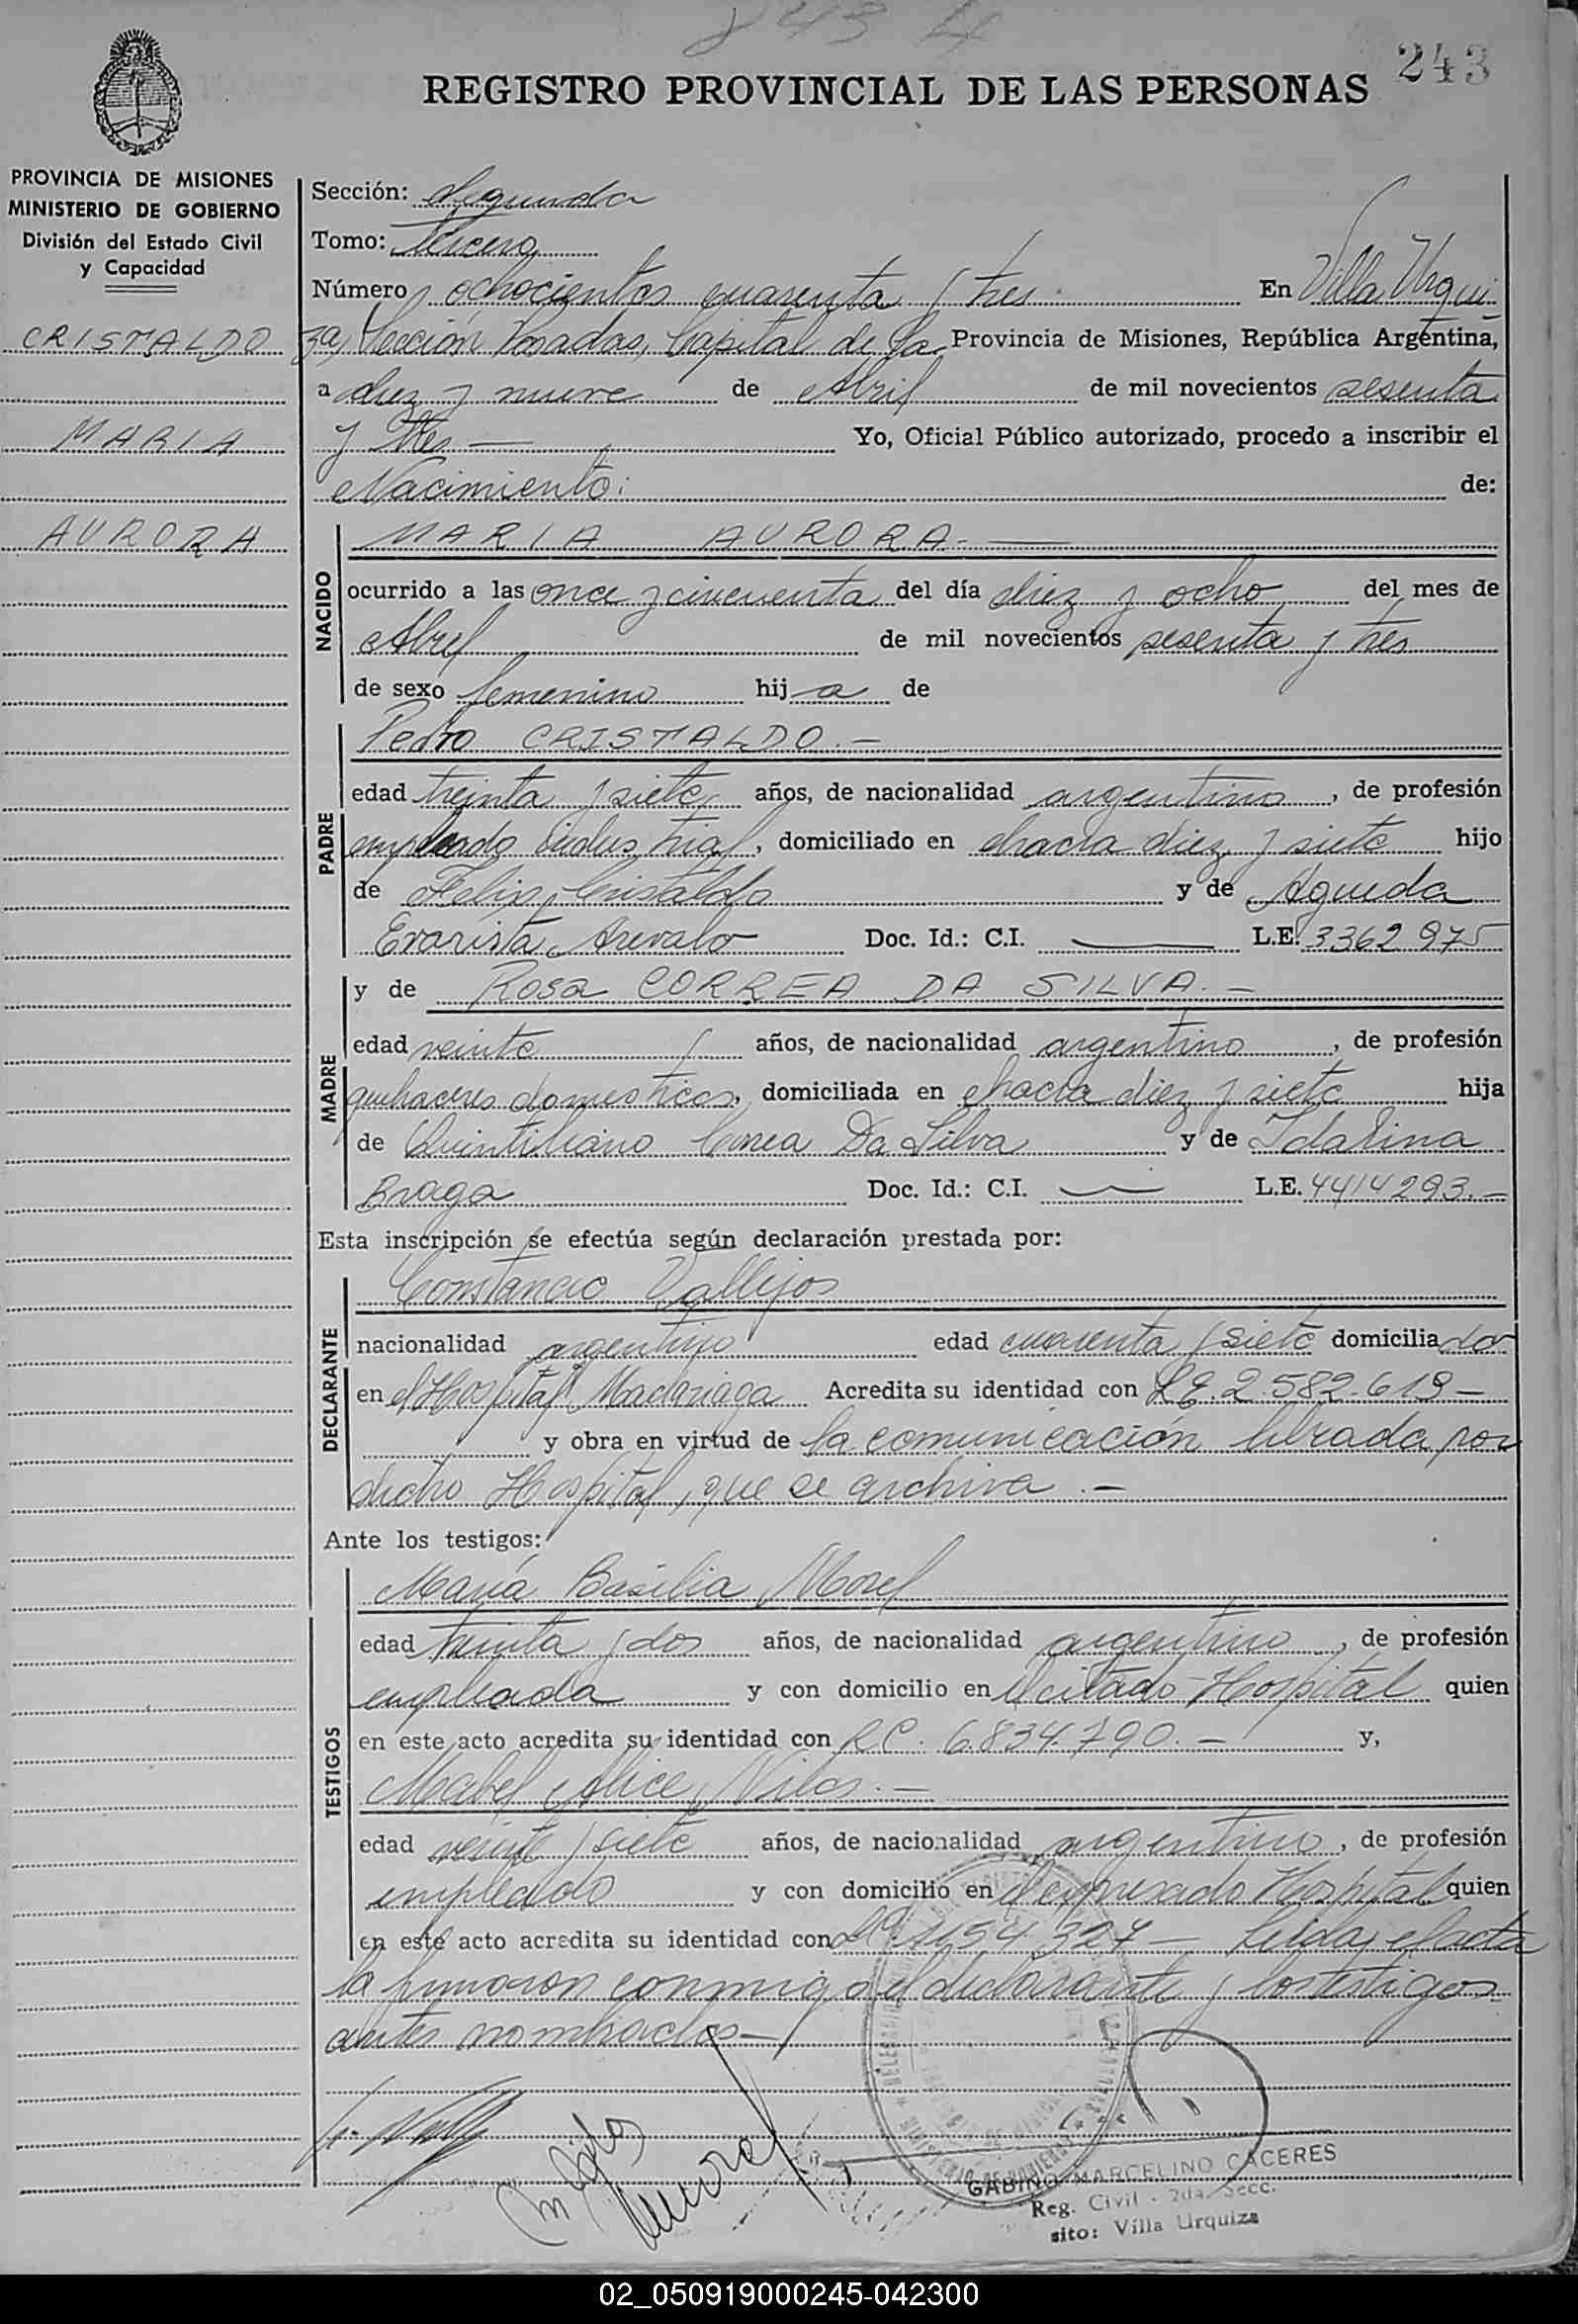 843
243
REGISTRO PROVINCIAL DE LAS PERSONAS
PROVINCIA DE MISIONES
MINISTERIO DE GOBIERNO
División del Estado Civil
y Capacidad
CRISTALDO
MARIA
AURORA
Sección: Segunda
Tomo: Tercero
Número ochocientos cuarenta y tres En Villa Urqui
za, Sección Posadas, Capital de la Provincia de Misiones, República Argentina,
a diez y nueve de Abril de mil novecientos sesenta
y tres — Yo, Oficial Público autorizado, procedo a inscribir el
Nacimiento: de:
NACIDO
MARIA AURORA. —
ocurrido a las once y cincuenta del día diez y ocho del mes de
Abril de mil novecientos sesenta y tres
de sexo femenino hija de
PADRE
Pedro CRISTALDO. —
edad treinta y siete años, de nacionalidad argentino, de profesión
empleado industrial, domiciliado en chacra diez y siete hijo
de Felix Cristaldo y de Agueda
Evarista Arevalo Doc. Id.: C.I. — L.E. 3362975
MADRE
y de Rosa CORREA DA SILVA. —
edad veinte años, de nacionalidad argentino, de profesión
quehaceres domesticos, domiciliada en chacra diez y siete hija
de Quintiliano Correa Da Silva y de Idalina
Braga Doc. Id.: C.I. — L.E. 4414293. —
Esta inscripción se efectúa según declaración prestada por:
DECLARANTE
Constancio Vallejos
nacionalidad argentino edad cuarenta y siete domiciliado
en el Hospital Madariaga Acredita su identidad con L.E. 2.582.619 —
y obra en virtud de la comunicación librada por
dicho Hospital, que se archiva. —
Ante los testigos:
TESTIGOS
María Basilia Morel
edad treinta y dos años, de nacionalidad argentino, de profesión
empleada y con domicilio en el citado Hospital quien
en este acto acredita su identidad con L.C. 6.834.790. — y,
Mabel Alice —
edad veinte y siete años, de nacionalidad argentino, de profesión
empleado y con domicilio en el expresado Hospital quien
en este acto acredita su identidad con — Leida el acta
la firmaron conmigo el declarante y los testigos
antes nombrados —
GABINO MARCELINO CACERES
Reg. Civil - 2da. Secc.
sito: Villa Urquiza
02_050919000245-042300